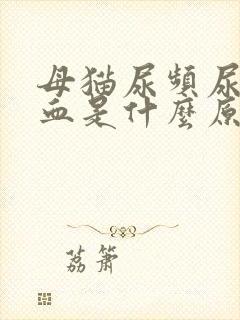 母猫尿頻尿
血是什麼原
荔簫